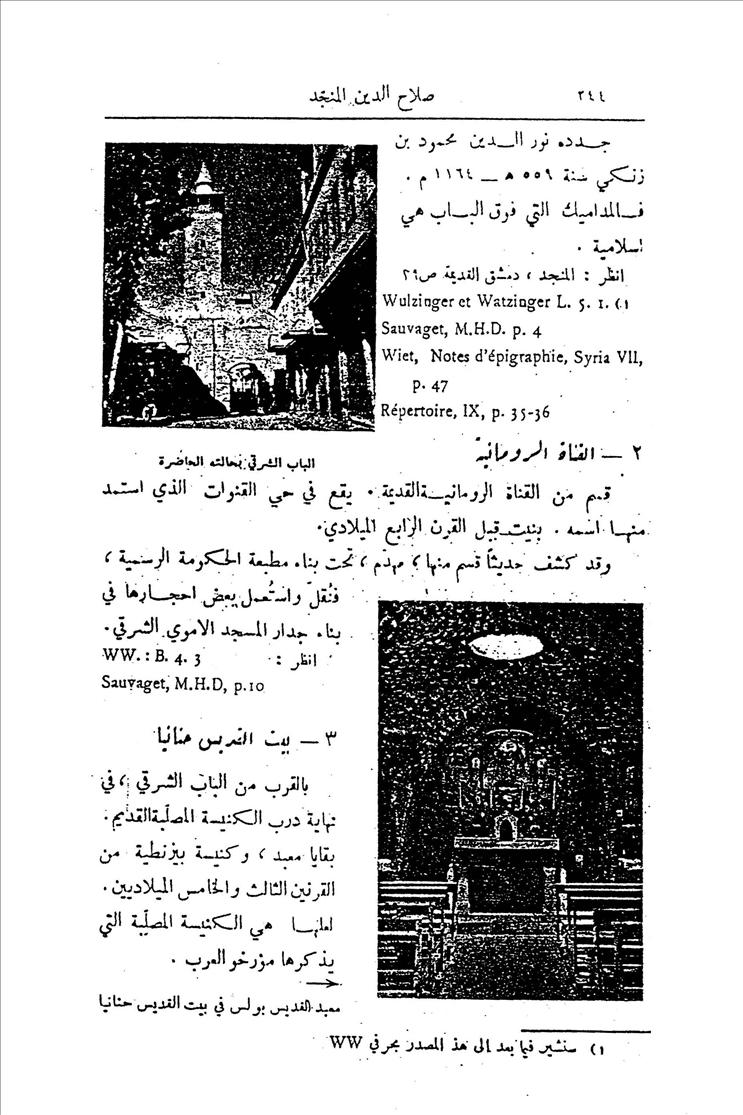 ٢٤٤
صلاح الدين المنجّد
جدده نور الدين محمود بن
زنكي سنة ٥٥٩ هـ — ١١٦٤ م .
فالمداميك التي فوق الباب هي
اسلامية .
انظر : المنجد ، دمشق القديمة ص٢٩
Wulzinger et Watzinger L. 5. 1. (١
Sauvaget, M.H.D. p. 4
Wiet, Notes d'épigraphie, Syria VII,
p. 47
Répertoire, IX, p. 35-36
الباب الشرقي بحالته الحاضرة
٢ — القناة الرومانية
قسم من القناة الرومانية القديمة . يقع في حي القنوات الذي استمد
منها اسمه . بنيت قبل القرن الرابع الميلادي.
وقد كشف حديثاً قسم منها ، مهدّم ، تحت بناء مطبعة الحكومة الرسمية ،
فنُقلَ واستُعمل بعض احجارها في
بناء جدار المسجد الاموي الشرقي .
انظر : WW. : B. 4. 3
Sauvaget, M.H.D, p.10
٣ — بيت القديس حنانيا
بالقرب من الباب الشرقي ، في
نهاية درب الكنيسة المصلّبة القديم .
بقايا معبد ، وكنيسة بيزنطية من
القرنين الثالث والخامس الميلاديين .
لعلها هي الكنيسة المصلّبة التي
يذكرها مؤرخو العرب .
معبد القديس بولس في بيت القديس حنانيا
١) سنشير فيما بعد الى هذ المصدر بحرفي WW